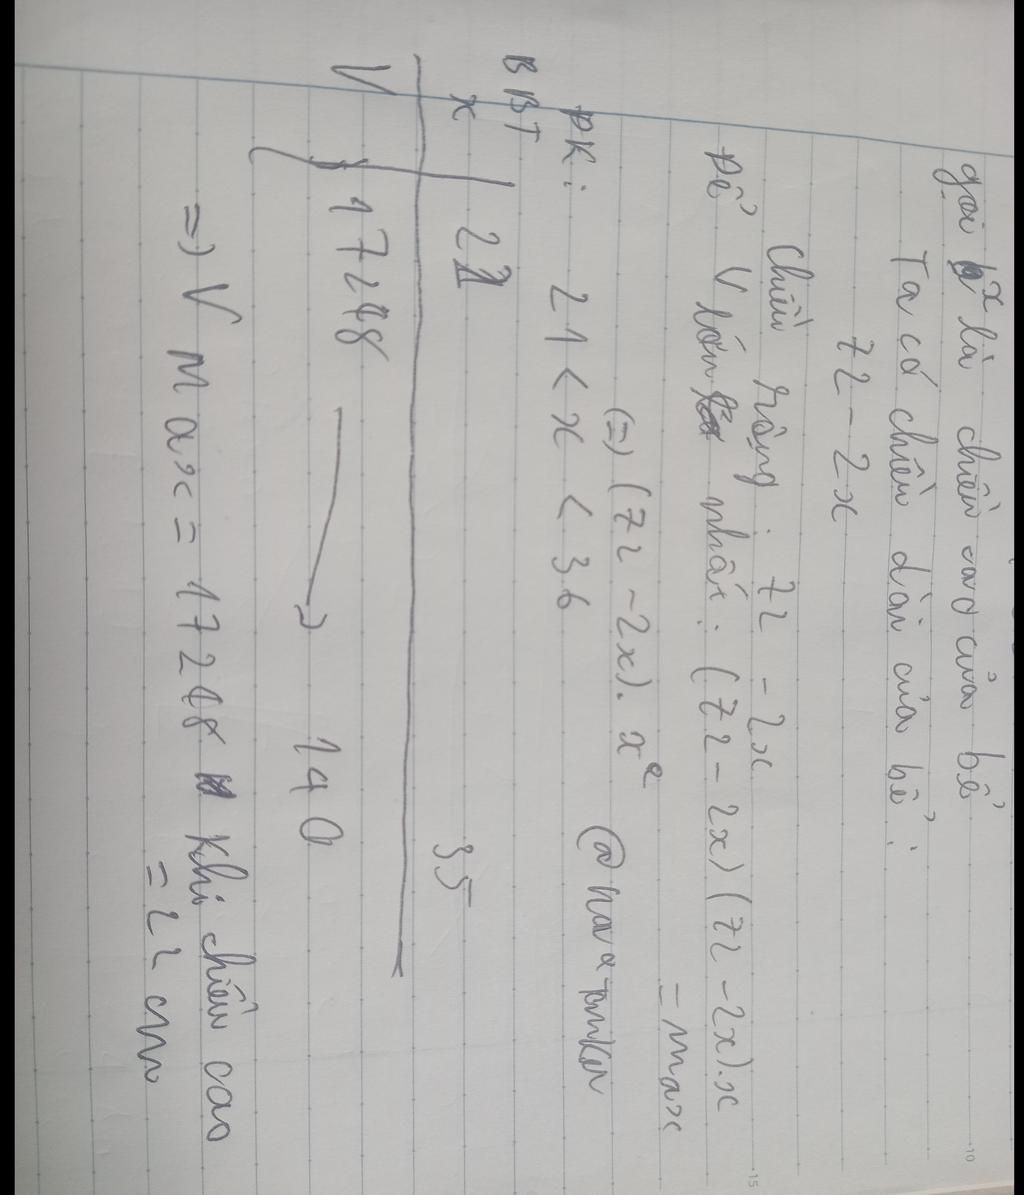 gọi x là chiều cao của bể
Ta có chiều dài của bể :
72 - 2x
chiều rộng : 72 - 2x
Để V lớn nhất : (72 - 2x) (72 - 2x).x
= max
(=) (72 - 2x). x²
ĐK : 21 < x < 36
BBT
x 22 35
V 17248 140
=> V Max = 17248 khi chiều cao
= 22 cm
10
15